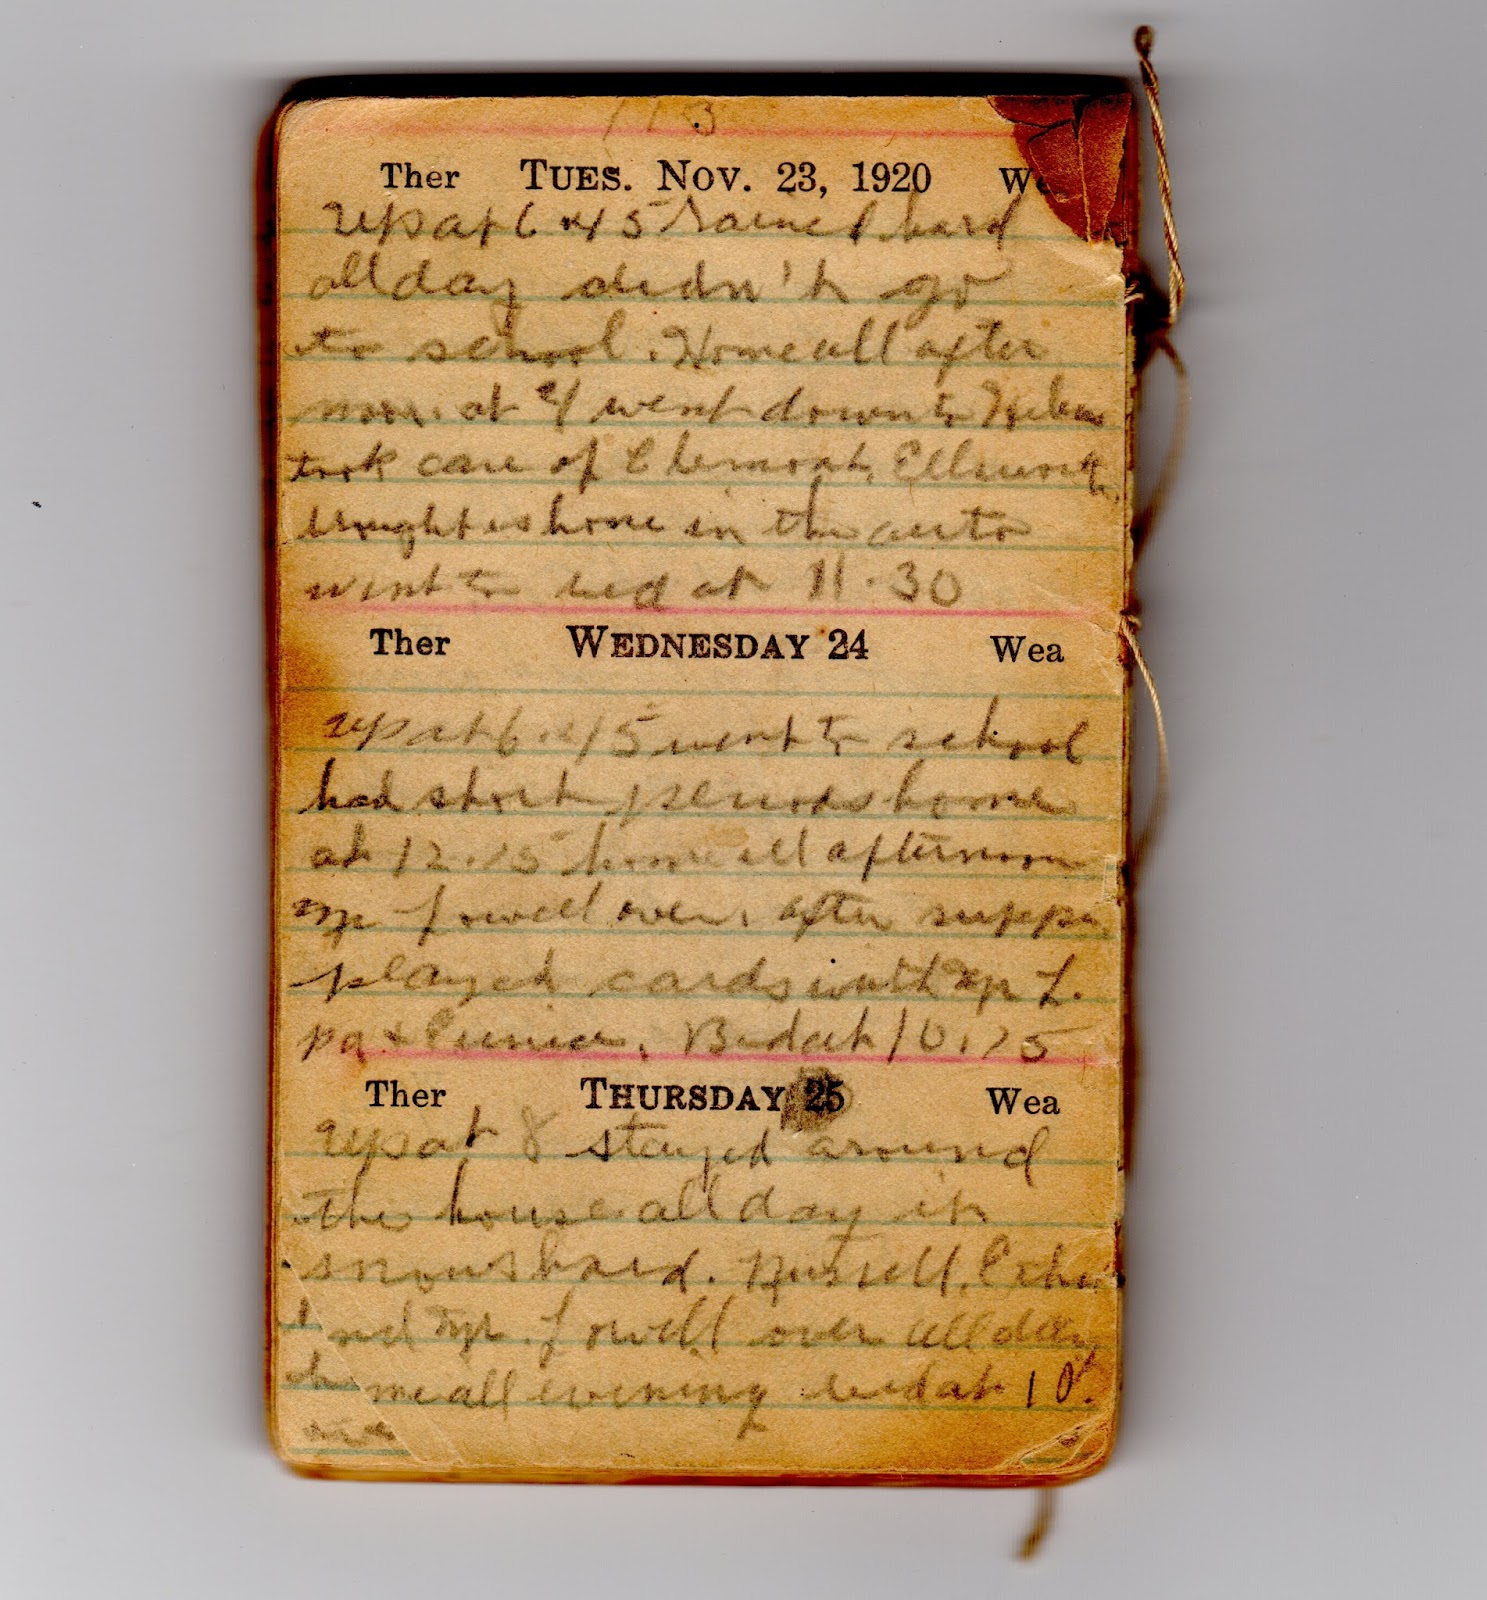 113
Ther TUES. NOV. 23, 1920 We
up at 6.45 rained hard
all day didn't go
to school. Home all after
noon. at 4 went down to Helens
took care of Clemont. Ellsworth
brought us home in the auto
went to bed at 11.30
Ther WEDNESDAY 24 Wea
up at 6.45 went to school
had short periods home
at 12.15 home all afternoon
Mr Lowell over. after supper
played cards with Mr L.
pa & Eunice. Bed at 10.15
Ther THURSDAY 25 Wea
up at 8 stayed around
the house all day it
snows hard. Russell,
and Mr. Lowell over all day
home all evening bed at 10.